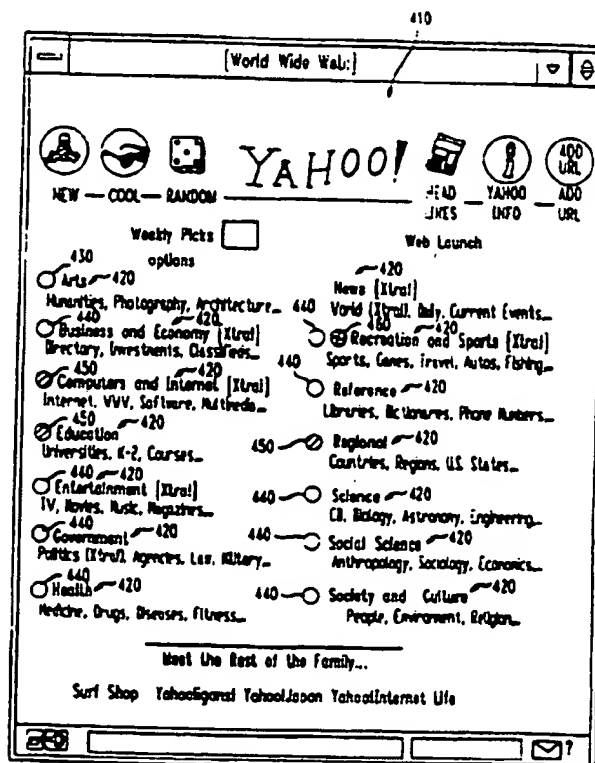 410
[World Wide Web:]
YAHOO!
ADD URL
NEW — COOL — RANDOM
YAHOO INFO
ADD URL
Weekly Picks
Web Launch
options
430
Arts 420
Humanities, Photography, Architecture...
440 420
Business and Economy [Xtra!]
Directory, Investments, Classifieds...
450 420
Computers and Internet [Xtra!]
Internet, WWW, Software, Multimedia...
450 420
Education
Universities, K-2, Courses...
440 420
Entertainment [Xtra!]
TV, Movies, Music, Magazines...
440 420
Government
Politics [Xtra!], Agencies, Law, Military...
440 420
Health
Medicine, Drugs, Diseases, Fitness...
420
News [Xtra!]
World [Xtra!], Daily, Current Events...
440 460 420
Recreation and Sports [Xtra!]
Sports, Games, Travel, Autos, Fishing...
440
Reference 420
Libraries, Dictionaries, Phone Numbers...
450 Regional 420
Countries, Regions, U.S. States...
440 Science 420
CS, Biology, Astronomy, Engineering...
440 Social Science 420
Anthropology, Sociology, Economics...
440 Society and Culture 420
People, Environment, Religion...
Meet the Rest of the Family...
Surf Shop Yahooligans! Yahoo!Japan Yahoo!Internet Life
?